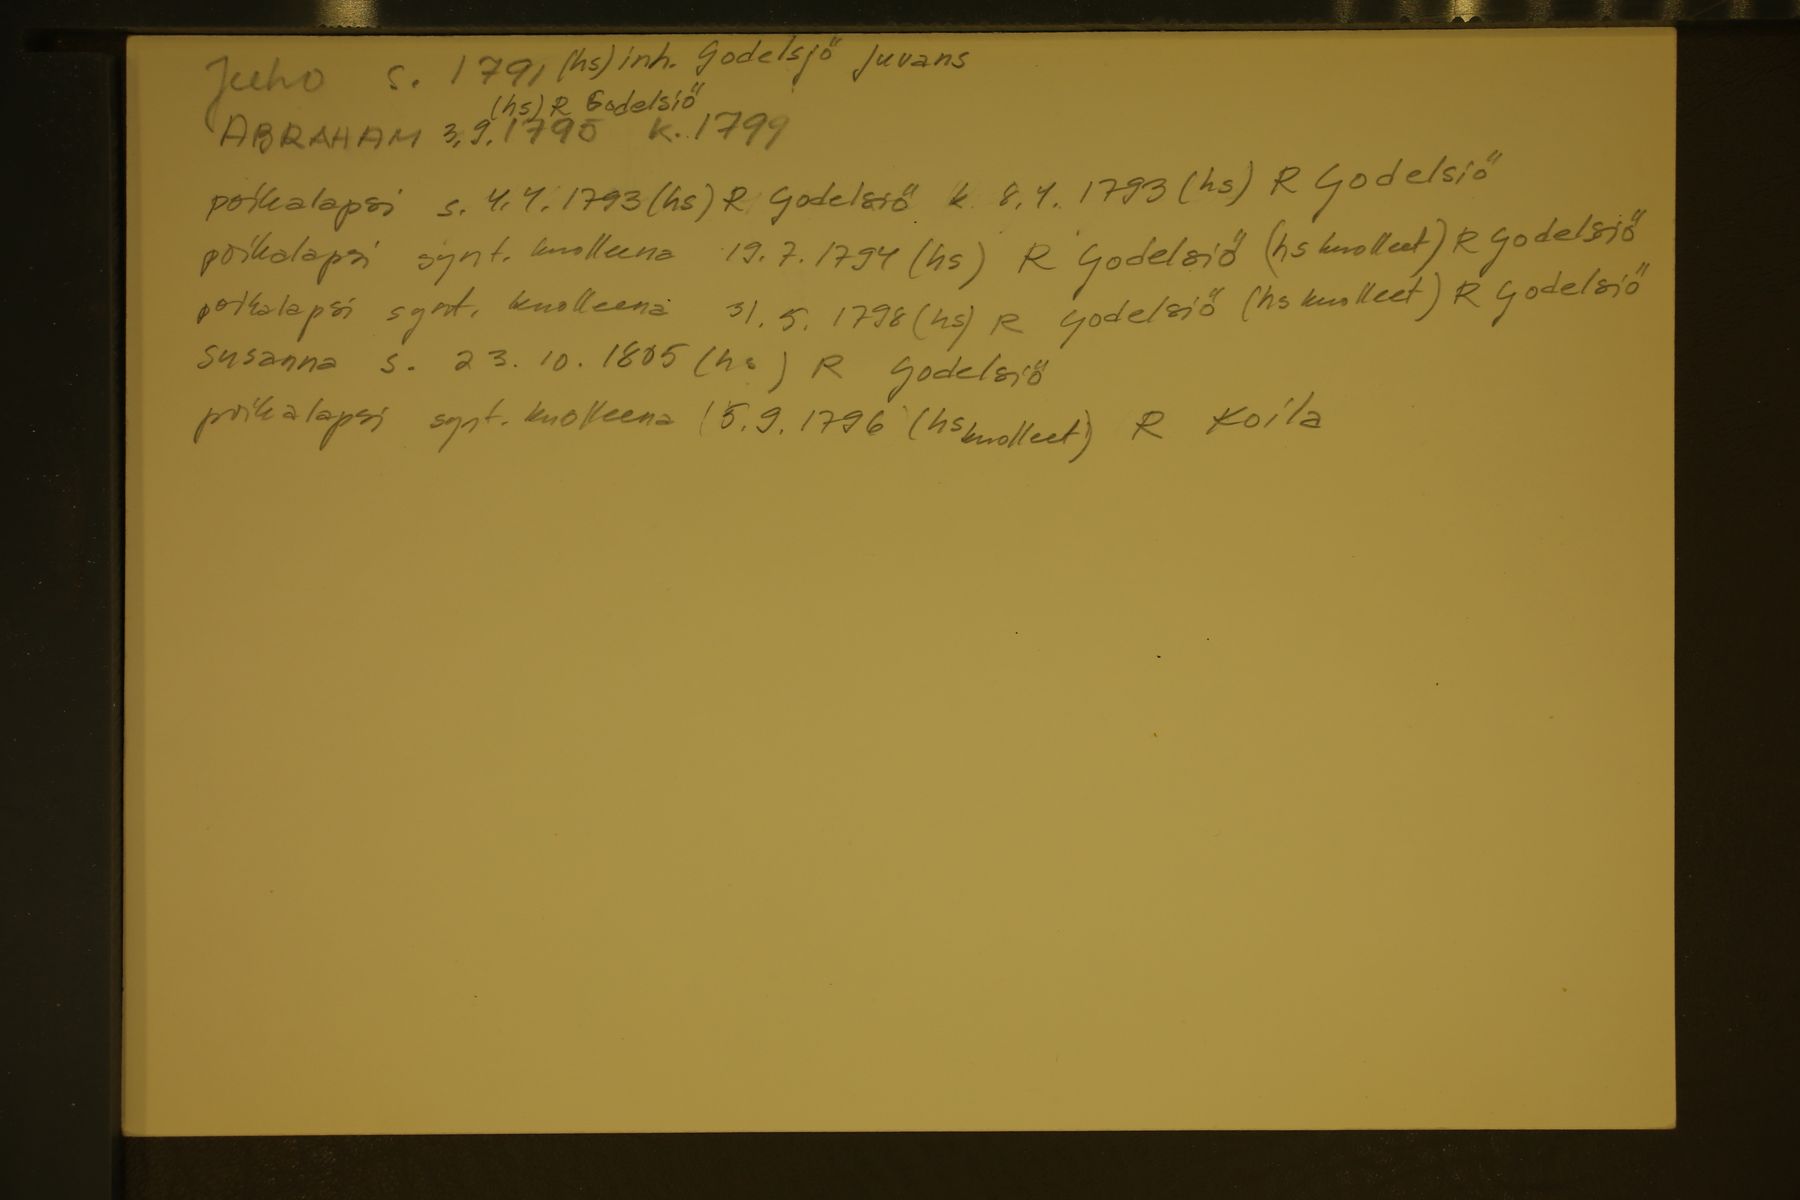 Juho s. 1791 (hs) inh. Godelsjö Juvans
(hs) R Godelsiö
ABRAHAM 3.9.1795 k. 1799
poikalapsi s. 4.4.1793 (hs) R Godelsiö k 8.4.1793 (hs) R Godelsiö
poikalapsi synt. kuolleena 19.7.1794 (hs) R Godelsiö (hs kuolleet) R Godelsiö
poikalapsi synt. kuolleena 31.5.1798 (hs) R Godelsiö (hs kuolleet) R Godelsiö
Susanna s. 23.10.1805 (hs) R Godelsiö
poikalapsi synt. kuolleena 15.9.1796 (hs kuolleet) R Koila